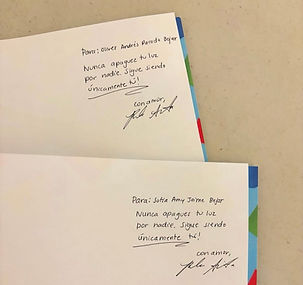 Para: Oliver Andrés Parada Bejar
Nunca apagues tu luz
por nadie. Sigue siendo
únicamente tú!
con amor,
Para: Sofía Amy Jaime Bejar
Nunca apagues tu luz
por nadie. Sigue siendo
únicamente tú!
con amor,